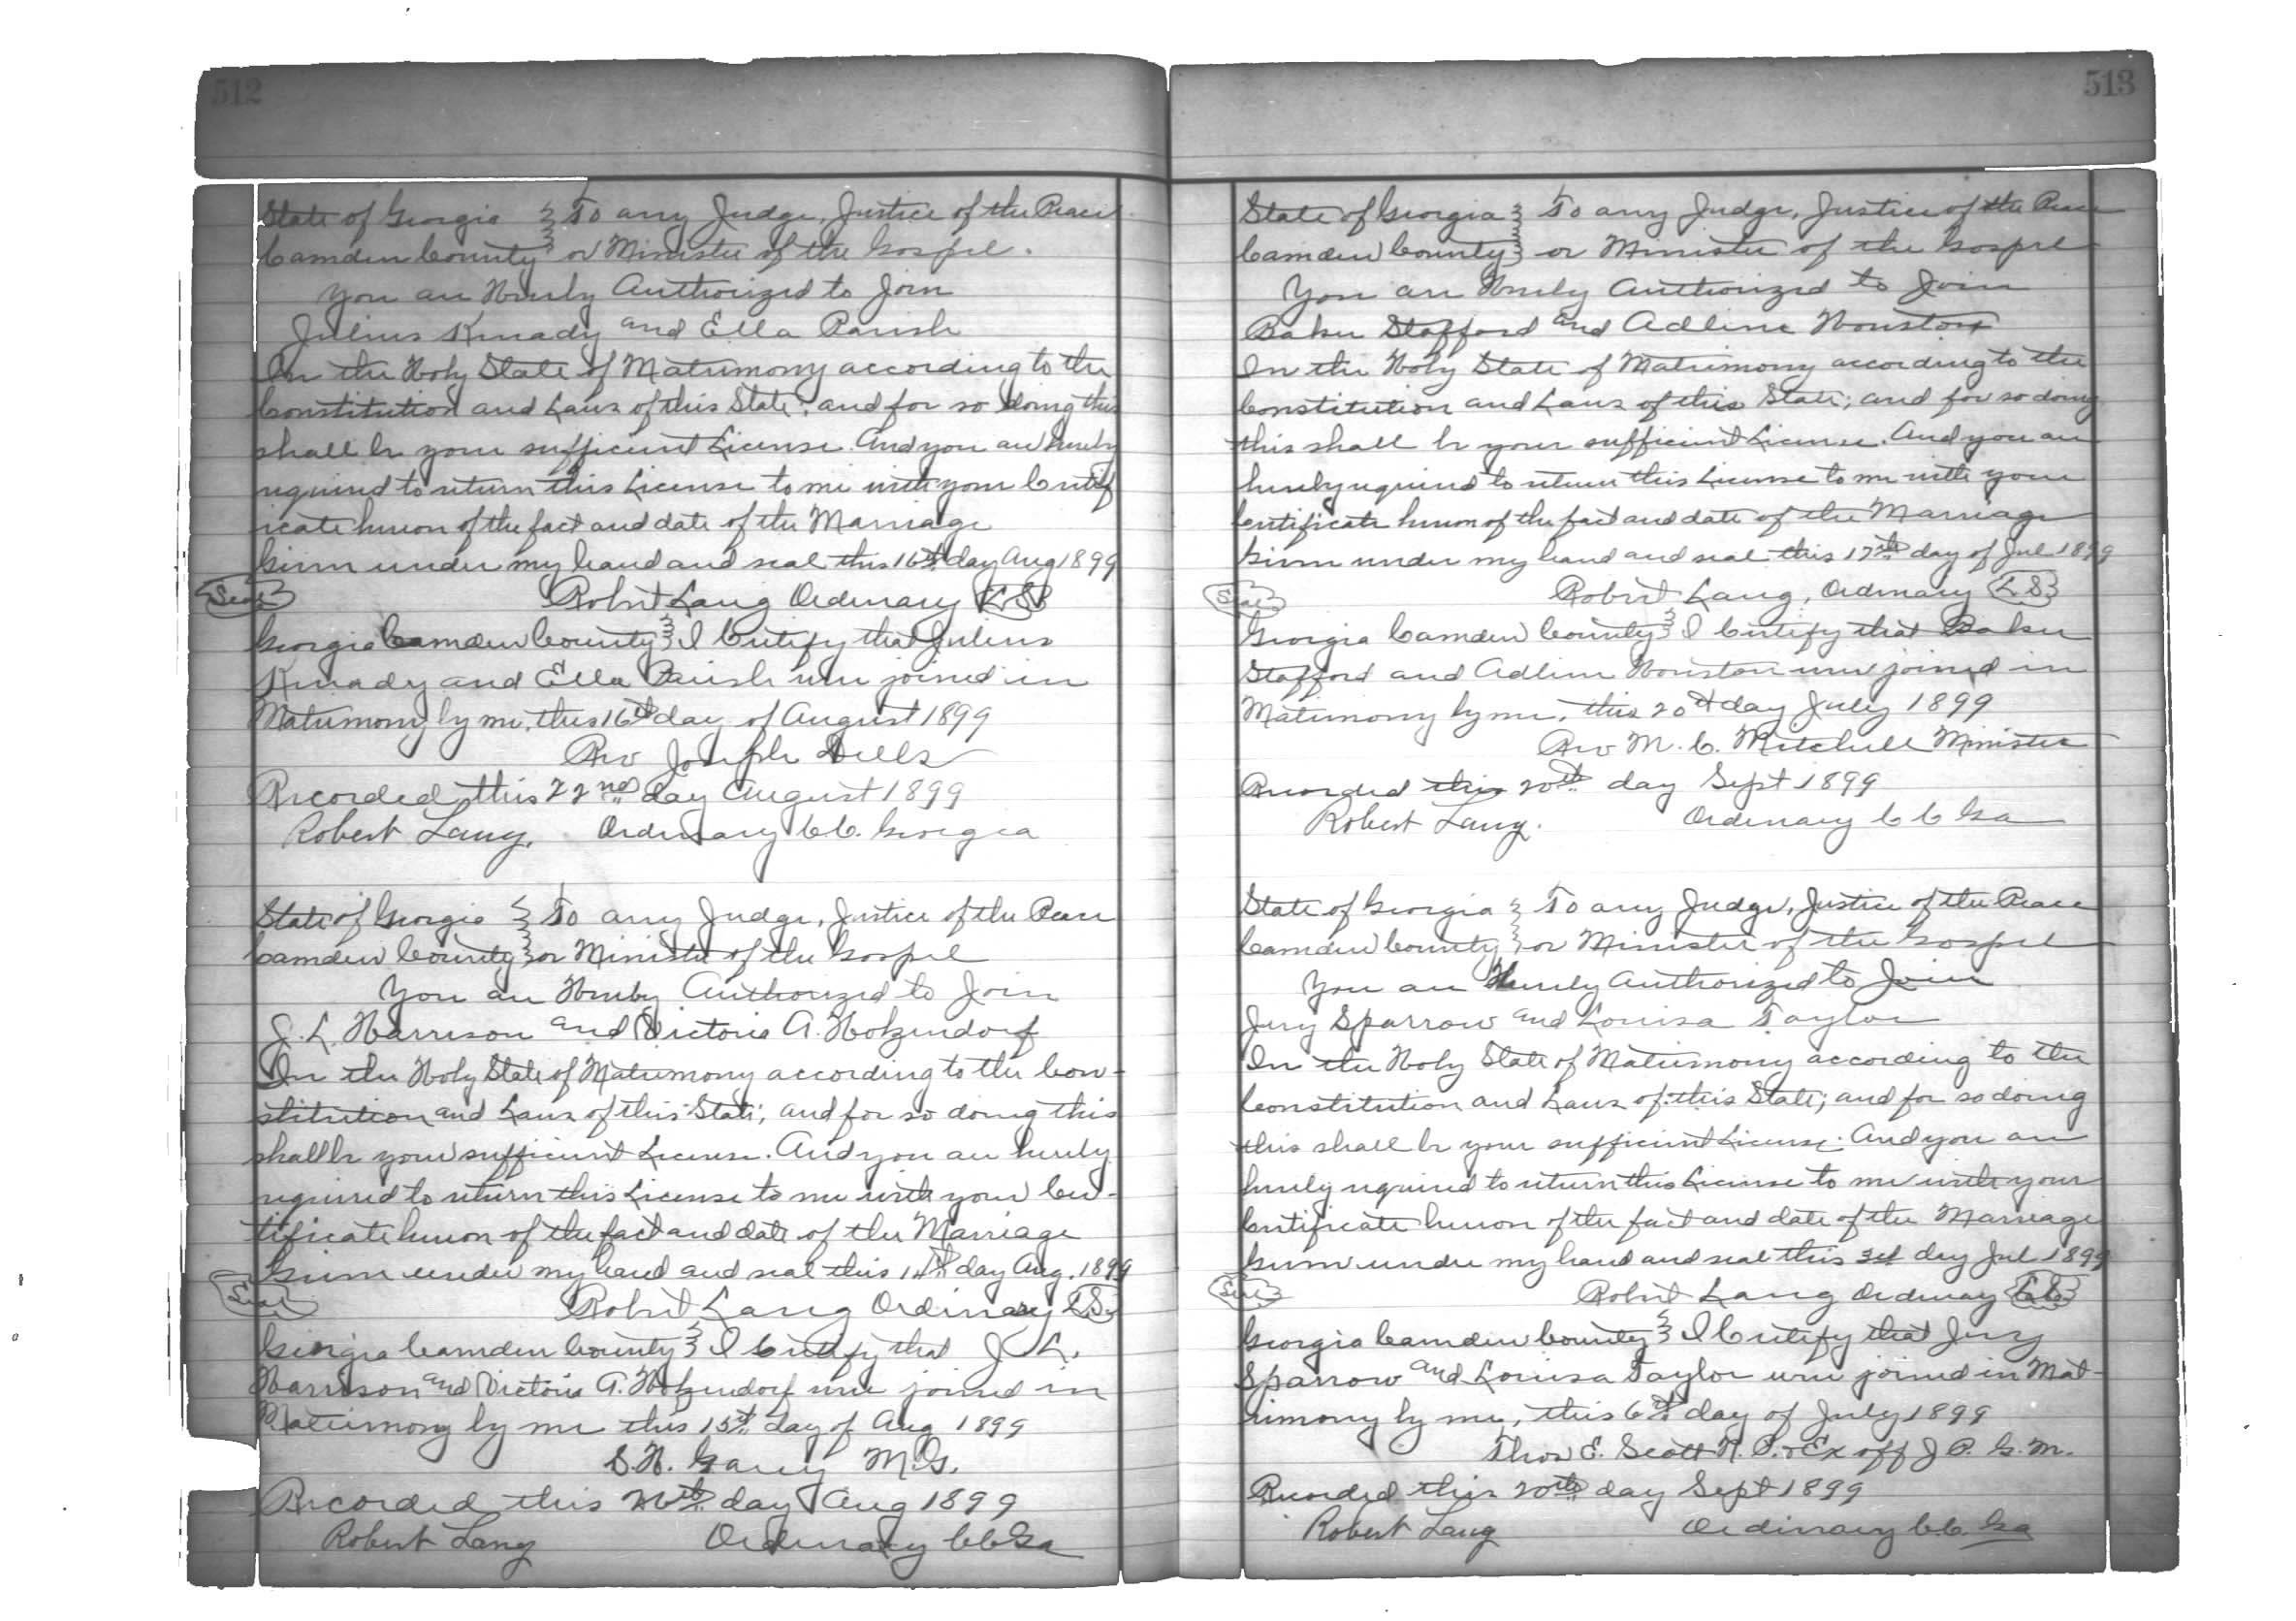 512
State of Georgia } To any Judge, Justice of the Peace
Camden County } or Minister of the Gospel.
You are Hereby Authorized to Join
Julius Kenady and Ella Parish
In the Holy State of Matrimony according to the
Constitution and Laws of this State; and for so doing this
shall be your sufficient License. And you are hereby
required to return this License to me with your Certif
icate hereon of the fact and date of the Marriage
Given under my hand and seal this 16th day Aug 1899
Seal Robert Lang Ordinary L.S.
Georgia Camden County } I Certify that Julius
Kenady and Ella Parish were joined in
Matrimony by me, this 16th day of August 1899
Rev Joseph Wells
Recorded this 22nd day August 1899
Robert Lang, Ordinary C.C. Georgia
State of Georgia } To any Judge, Justice of the Peace
Camden County } or Minister of the Gospel
You are Hereby Authorized to Join
J. L. Harrison and Victoria A. Holzendorf
In the Holy State of Matrimony according to the Con-
stitution and Laws of this State; and for so doing this
shall be your sufficient License. And you are hereby
required to return this License to me with your Cer-
tificate hereon of the fact and date of the Marriage
Given under my hand and seal this 14th day Aug. 1899
Seal Robert Lang Ordinary L.S.
Georgia Camden County } I Certify that J. L.
Harrison and Victoria A. Holzendorf were joined in
Matrimony by me this 15th day of Aug 1899
S. N. M.G.
Recorded this 26th day Aug 1899
Robert Lang Ordinary C C Ga
513
State of Georgia } To any Judge, Justice of the Peace
Camden County } or Minister of the Gospel
You are Hereby Authorized to Join
Baker Stafford and Adline Houston
In the Holy State of Matrimony according to the
Constitution and Laws of this State; and for so doing
this shall be your sufficient License. And you are
hereby required to return this License to me with your
Certificate hereon of the fact and date of the Marriage
Given under my hand and seal this 17th day of Jul 1899
Seal Robert Lang, Ordinary L.S.
Georgia Camden County } I Certify that Baker
Stafford and Adline Houston were joined in
Matrimony by me, this 20th day July 1899
Rev M. C. Mitchell Minister
Recorded this 20th day Sept 1899
Robert Lang. Ordinary C C Ga
State of Georgia } To any Judge, Justice of the Peace
Camden County } or Minister of the Gospel
You are Hereby Authorized to Join
Jery Sparrow and Louisa Taylor
In the Holy State of Matrimony according to the
Constitution and Laws of this State; and for so doing
this shall be your sufficient License. And you are
hereby required to return this License to me with your
Certificate hereon of the fact and date of the Marriage
Given under my hand and seal this 3d day Jul 1899
Seal Robert Lang Ordinary L.S.
Georgia Camden County } I Certify that Jery
Sparrow and Louisa Taylor were joined in Mat-
rimony by me, this 6th day of July 1899
Thos E. Scott N. P. & Ex off J P. G. M.
Recorded this 20th day Sept 1899
Robert Lang Ordinary C.C. Ga